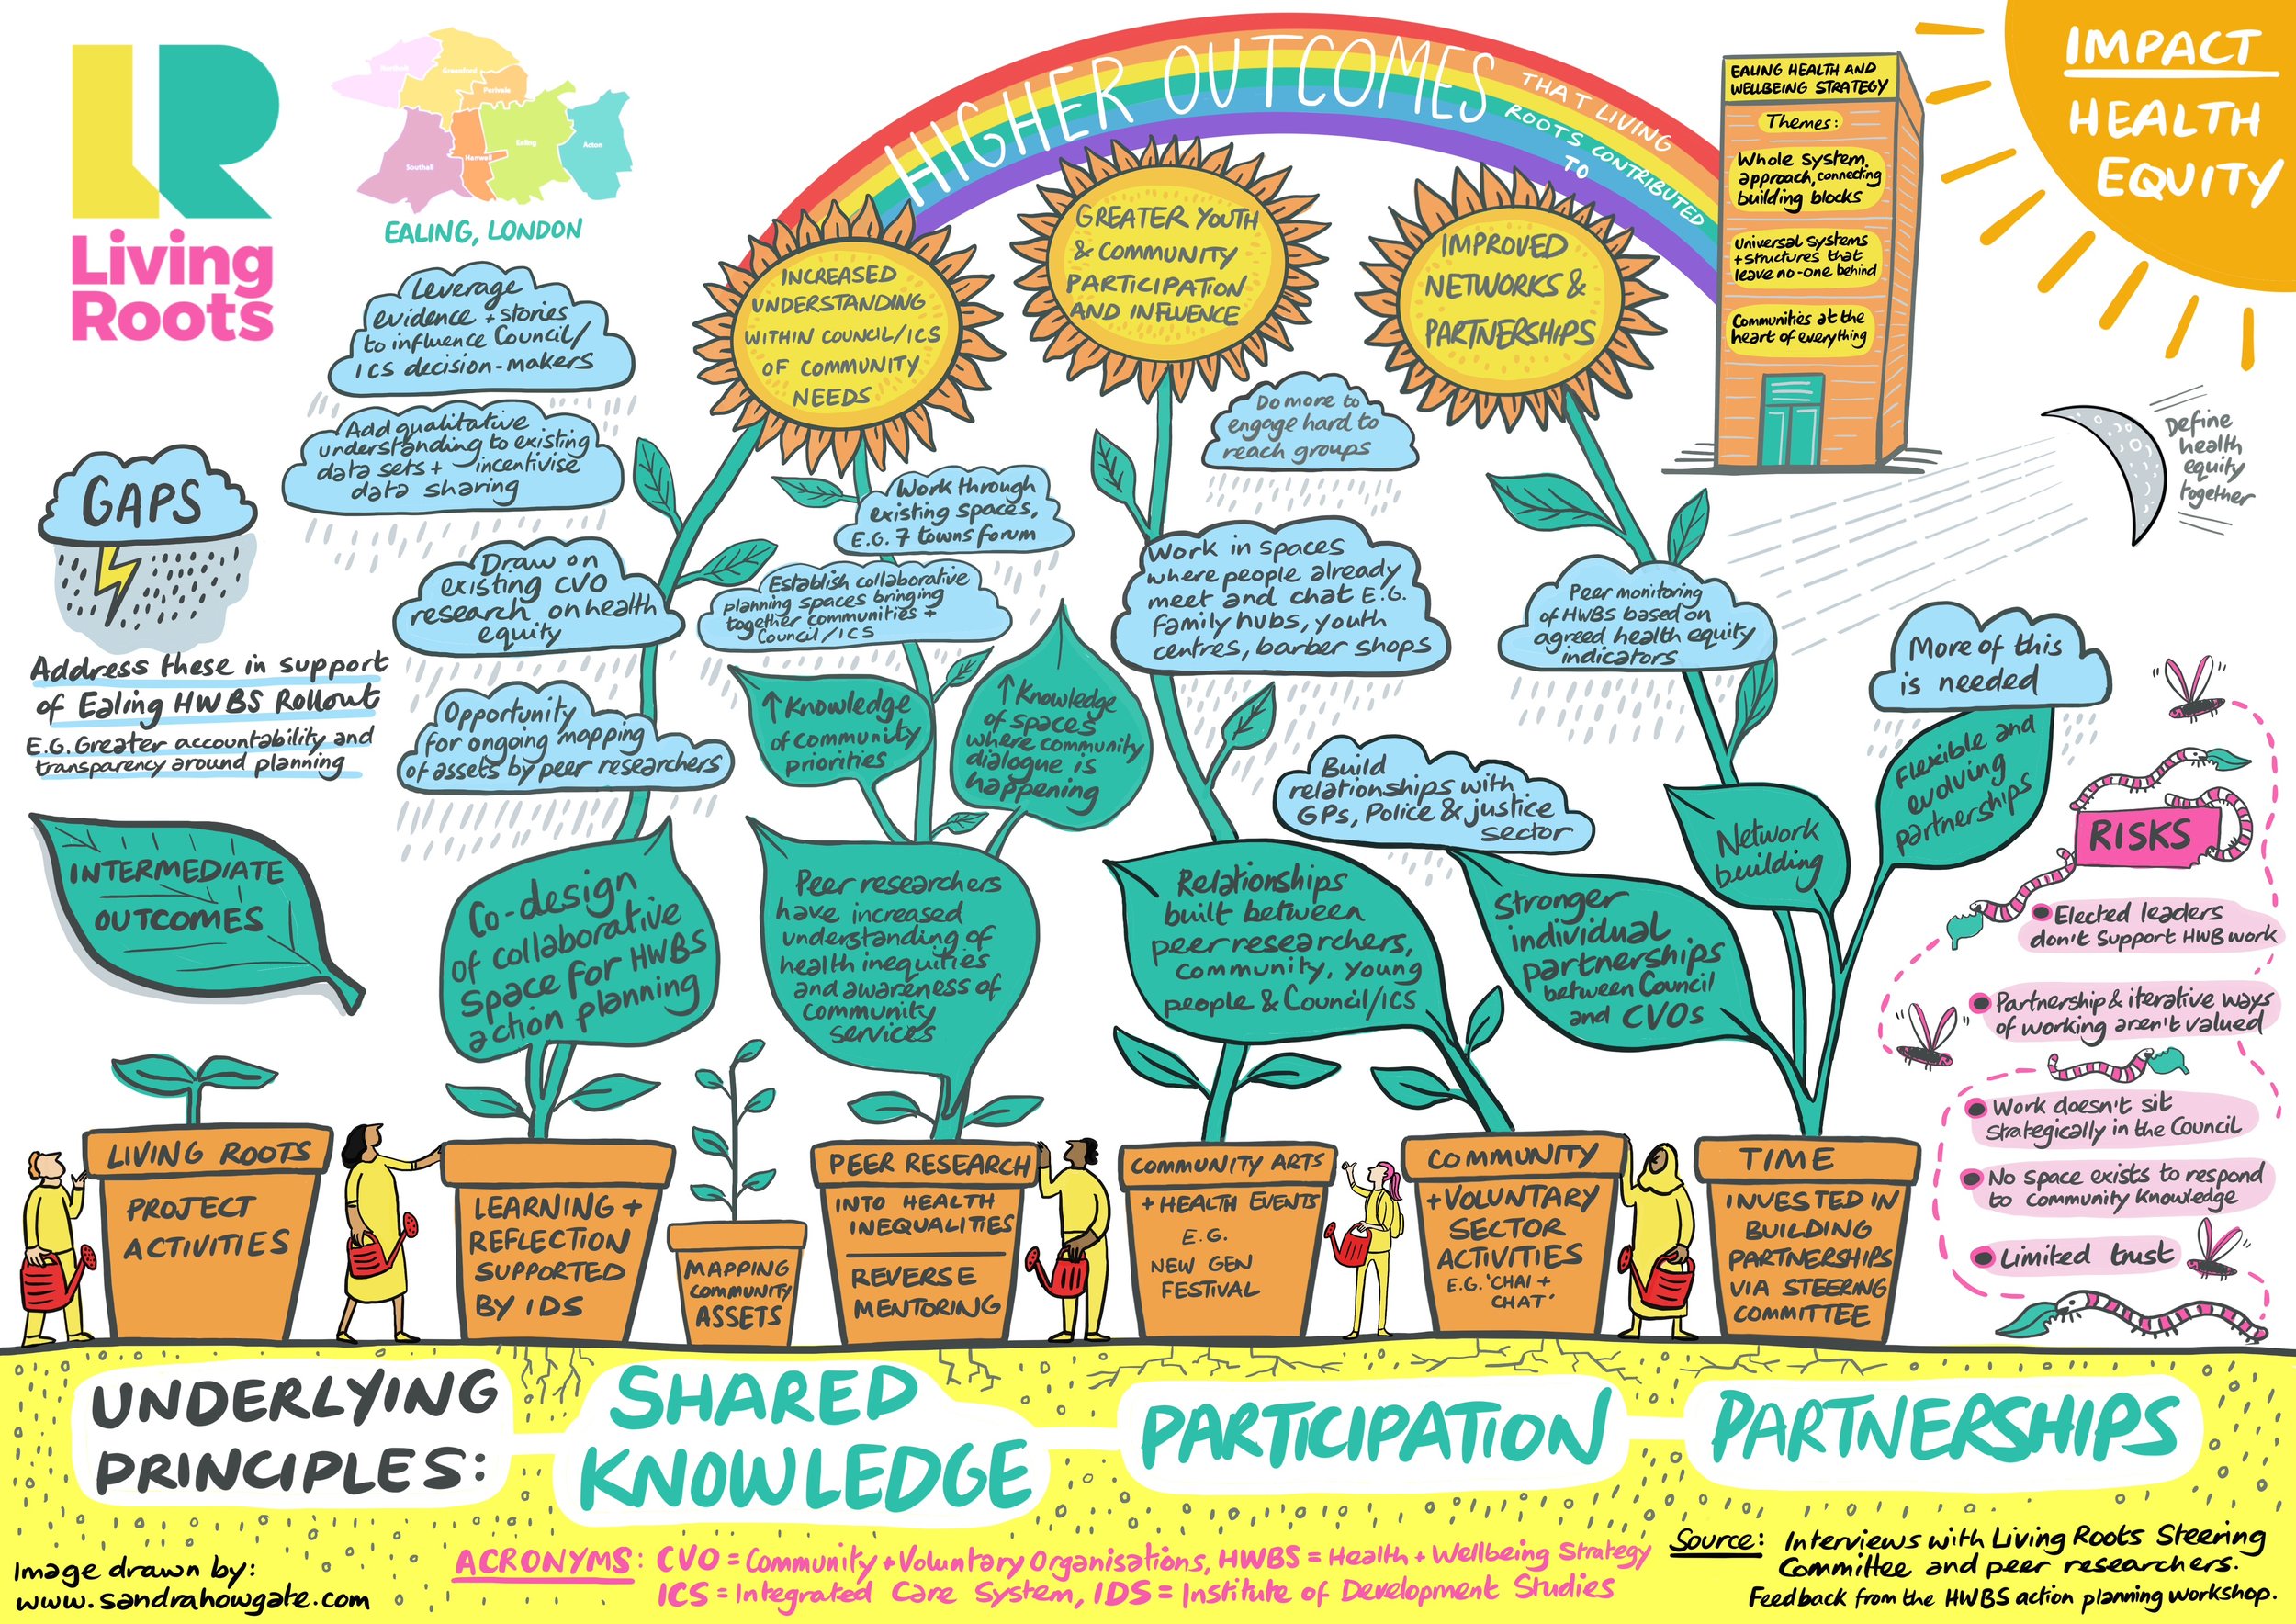 LR
Living
Roots
Northolt
Greenford
Perivale
Southall
Hanwell
Ealing
Acton
EALING, LONDON
HIGHER OUTCOMES THAT LIVING
ROOTS CONTRIBUTED
TO
EALING HEALTH AND
WELLBEING STRATEGY
Themes:
Whole system
approach, connecting
building blocks
Universal systems
+ structures that
leave no-one behind
Communities at the
heart of everything
IMPACT
HEALTH
EQUITY
Define
health
equity
together
INCREASED
UNDERSTANDING
WITHIN COUNCIL/ICS
OF COMMUNITY
NEEDS
GREATER YOUTH
& COMMUNITY
PARTICIPATION
AND INFLUENCE
IMPROVED
NETWORKS &
PARTNERSHIPS
GAPS
Address these in support
of Ealing HWBS Rollout
E.G. Greater accountability and
transparency around planning
Leverage
evidence + stories
to influence Council/
ICS decision-makers
Add qualitative
understanding to existing
data sets + incentivise
data sharing
Draw on
existing CVO
research on health
equity
Opportunity
for ongoing mapping
of assets by peer researchers
Work through
existing spaces,
E.G. 7 towns forum
Establish collaborative
planning spaces bringing
together communities +
Council/ICS
Do more to
engage hard to
reach groups
Work in spaces
where people already
meet and chat E.G.
family hubs, youth
centres, barber shops
Build
relationships with
GPs, Police & justice
sector
Peer monitoring
of HWBS based on
agreed health equity
indicators
More of this
is needed
INTERMEDIATE
OUTCOMES
Co-design
of collaborative
space for HWBS
action planning
↑ Knowledge
of community
priorities
↑ Knowledge
of spaces
where community
dialogue is
happening
Peer researchers
have increased
understanding of
health inequities
and awareness of
community
services
Relationships
built between
peer researchers,
community, young
people & Council/ICS
Stronger
individual
partnerships
between Council
and CVOs
Network
building
Flexible and
evolving
partnerships
RISKS
Elected leaders
don't support HWB work
Partnership & iterative ways
of working aren't valued
Work doesn't sit
strategically in the Council
No space exists to respond
to community knowledge
Limited trust
LIVING ROOTS
PROJECT
ACTIVITIES
LEARNING +
REFLECTION
SUPPORTED
BY IDS
MAPPING
COMMUNITY
ASSETS
PEER RESEARCH
INTO HEALTH
INEQUALITIES
REVERSE
MENTORING
COMMUNITY ARTS
+ HEALTH EVENTS
E.G.
NEW GEN
FESTIVAL
COMMUNITY
+ VOLUNTARY
SECTOR
ACTIVITIES
E.G. 'CHAI +
CHAT'
TIME
INVESTED IN
BUILDING
PARTNERSHIPS
VIA STEERING
COMMITTEE
UNDERLYING
PRINCIPLES:
SHARED
KNOWLEDGE
PARTICIPATION
PARTNERSHIPS
Image drawn by:
www.sandrahowgate.com
ACRONYMS: CVO = Community + Voluntary Organisations, HWBS = Health + Wellbeing Strategy
ICS = Integrated Care System, IDS = Institute of Development Studies
Source: Interviews with Living Roots Steering
Committee and peer researchers.
Feedback from the HWBS action planning workshop.